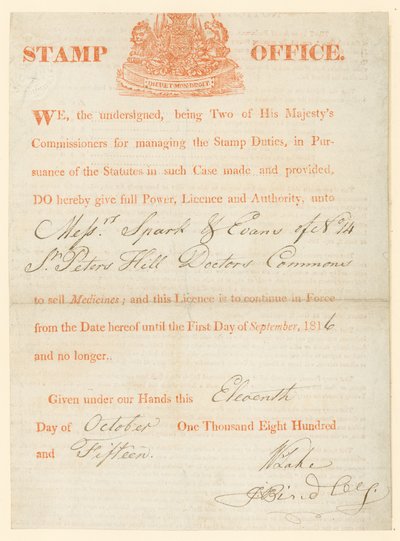 STAMP OFFICE.
DIEU ET MON DROIT
WE, the undersigned, being Two of His Majesty's
Commissioners for managing the Stamp Duties, in Pur-
suance of the Statutes in such Case made and provided,
DO hereby give full Power, Licence and Authority, unto
Mess.rs Spark & Evans of No 14
St. Peters Hill Doctors Commons
to sell Medicines; and this Licence is to continue in Force
from the Date hereof until the First Day of September, 1816
and no longer..
Given under our Hands this Eleventh
Day of October One Thousand Eight Hundred
and Fifteen.
W Lake
J Bind